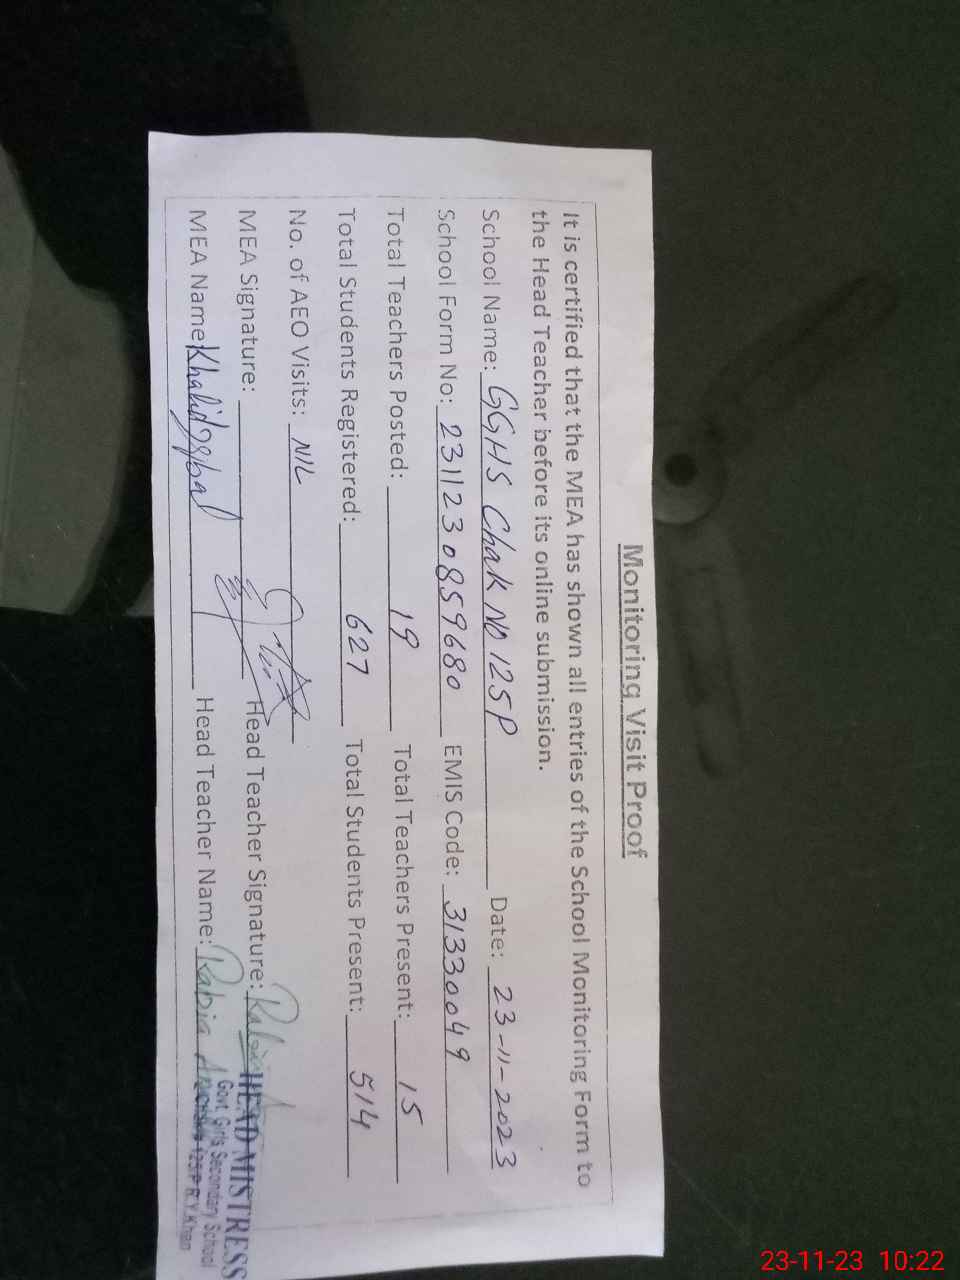 Monitoring Visit Proof
It is certified that the MEA has shown all entries of the School Monitoring Form to
the Head Teacher before its online submission.
School Name: GGHS Chak NO 125P Date: 23-11-2023
School Form No: 2311230859680 EMIS Code: 31330049
Total Teachers Posted: 19 Total Teachers Present: 15
Total Students Registered: 627 Total Students Present: 514
No. of AEO Visits: NIL
MEA Signature: Head Teacher Signature: Rabia
MEA Name: Khalid Iqbal Head Teacher Name: Rabia
HEAD MISTRESS
Govt. Girls Secondary School
125 P R.Y.Khan
23-11-23 10:22